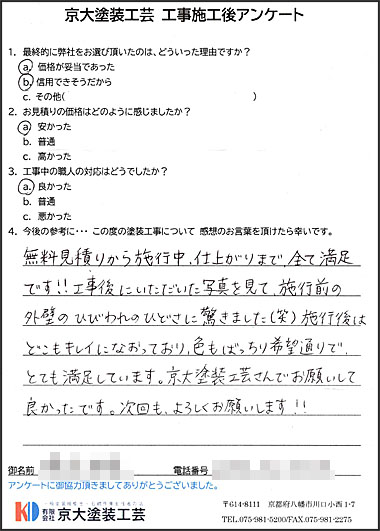 京大塗装工芸 工事施工後アンケート
1. 最終的に弊社をお選び頂いたのは、どういった理由ですか?
a. 価格が妥当であった
b. 信用できそうだから
c. その他( )
2. お見積りの価格はどのように感じましたか?
a. 安かった
b. 普通
c. 高かった
3. 工事中の職人の対応はどうでしたか?
a. 良かった
b. 普通
c. 悪かった
4. 今後の参考に・・・ この度の塗装工事について 感想のお言葉を頂けたら幸いです。
無料見積りから施行中、仕上がりまで、全て満足
です!! 工事後にいただいた写真を見て、施行前の
外壁のひびわれのひどさに驚きました(笑) 施行後は
どこもキレイになおっており、色もばっちり希望通りで、
とても満足しています。京大塗装工芸さんでお願いして
良かったです。次回も、よろしくお願いします!!
御名前 電話番号
アンケートに御協力頂きましてありがとうございました。
KD 有限会社 京大塗装工芸
〒614-8111 京都府八幡市川口小西1-7
TEL.075-981-5200/FAX.075-981-2275